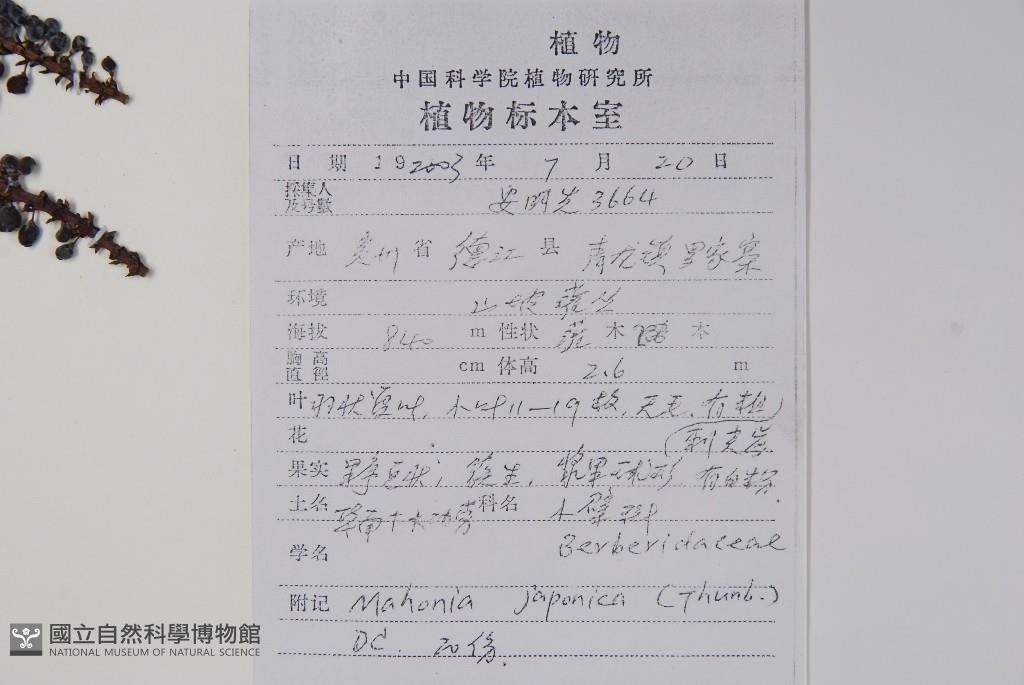 植物
中国科学院植物研究所
植物标本室
日期 192003年 7月 20日
採集人及号數 安明先 3664
产地 贵州省 德江县 青龙镇 里家寨
环境 山坡灌丛
海拔 840 m 性状 灌木 本
胸高直徑 cm 体高 2.6 m
叶 羽状复叶, 小叶11—19枚, 无毛, 有粗
花 (刺尖齿
果实 果序总状; 簇生, 浆果球形, 有白粉
土名 华南十大功劳 科名 小檗科
学名 Berberidaceae
附记 Mahonia japonica (Thunb.)
DC. 20份.
國立自然科學博物館
NATIONAL MUSEUM OF NATURAL SCIENCE